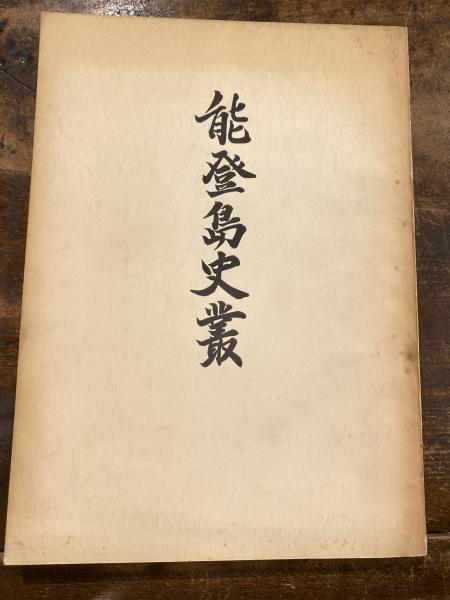 能登島史叢